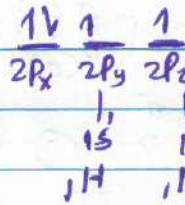 1L 1 1
2Px 2Py 2Pz
1,
1S
,H ,